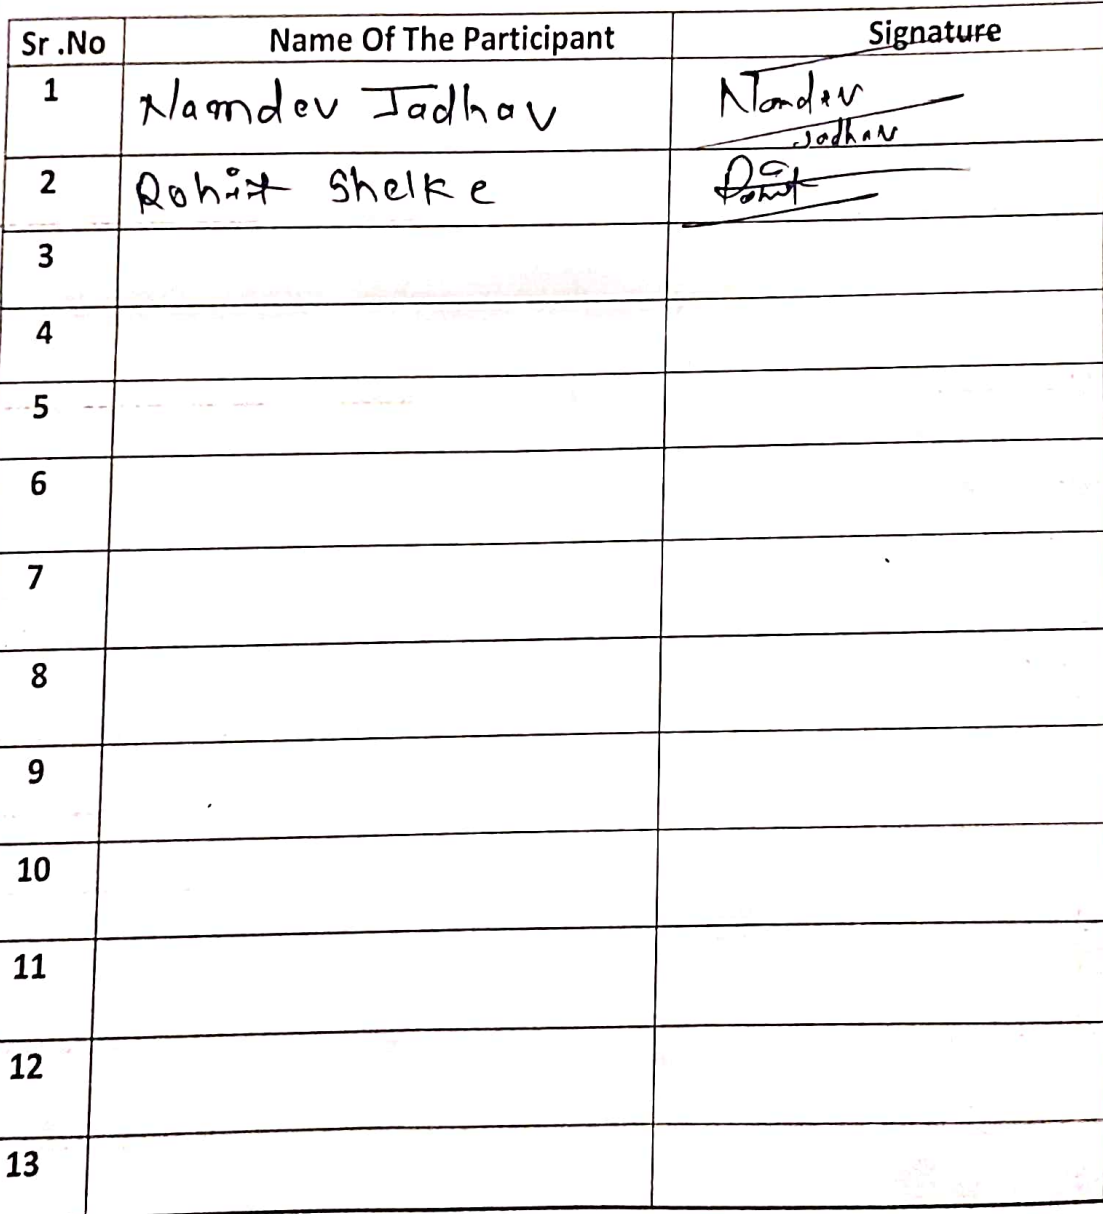 Sr .No Name Of The Participant Signature
1 Namdev Jadhav Namdev
Jadhav
2 Rohit Shelke Rohit
3
4
5
6
7
8
9
10
11
12
13